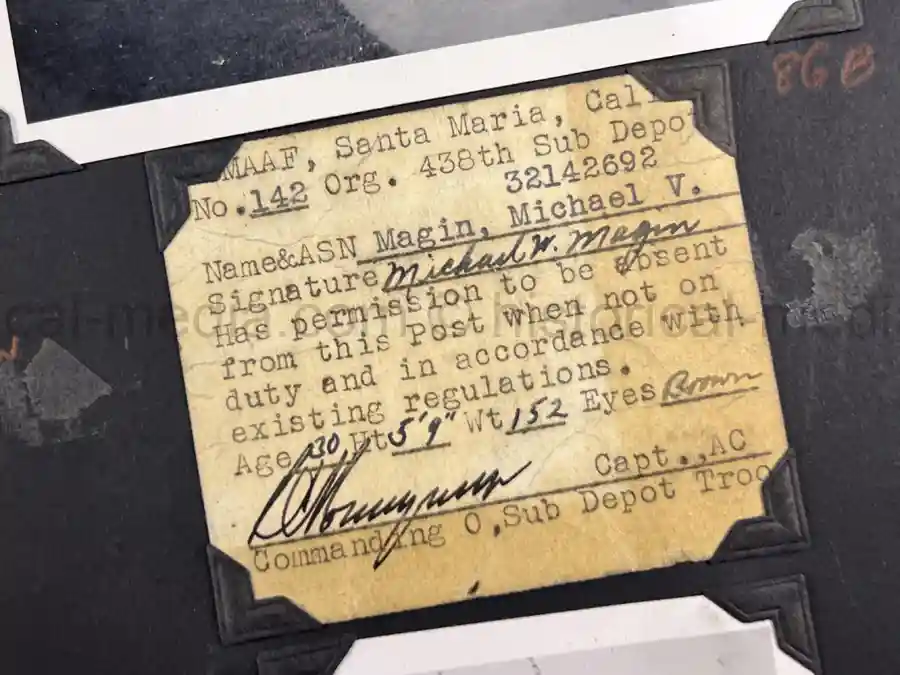 86B
MAAF, Santa Maria, Cali
No.142 Org. 438th Sub Depo
32142692
Name&ASN Magin, Michael V.
Signature Michael V. Magin
Has permission to be absent
from this Post when not on
duty and in accordance with
existing regulations.
Age 30 Ht 5'9" Wt 152 Eyes Brown
Capt., AC
Commanding O, Sub Depot Troo